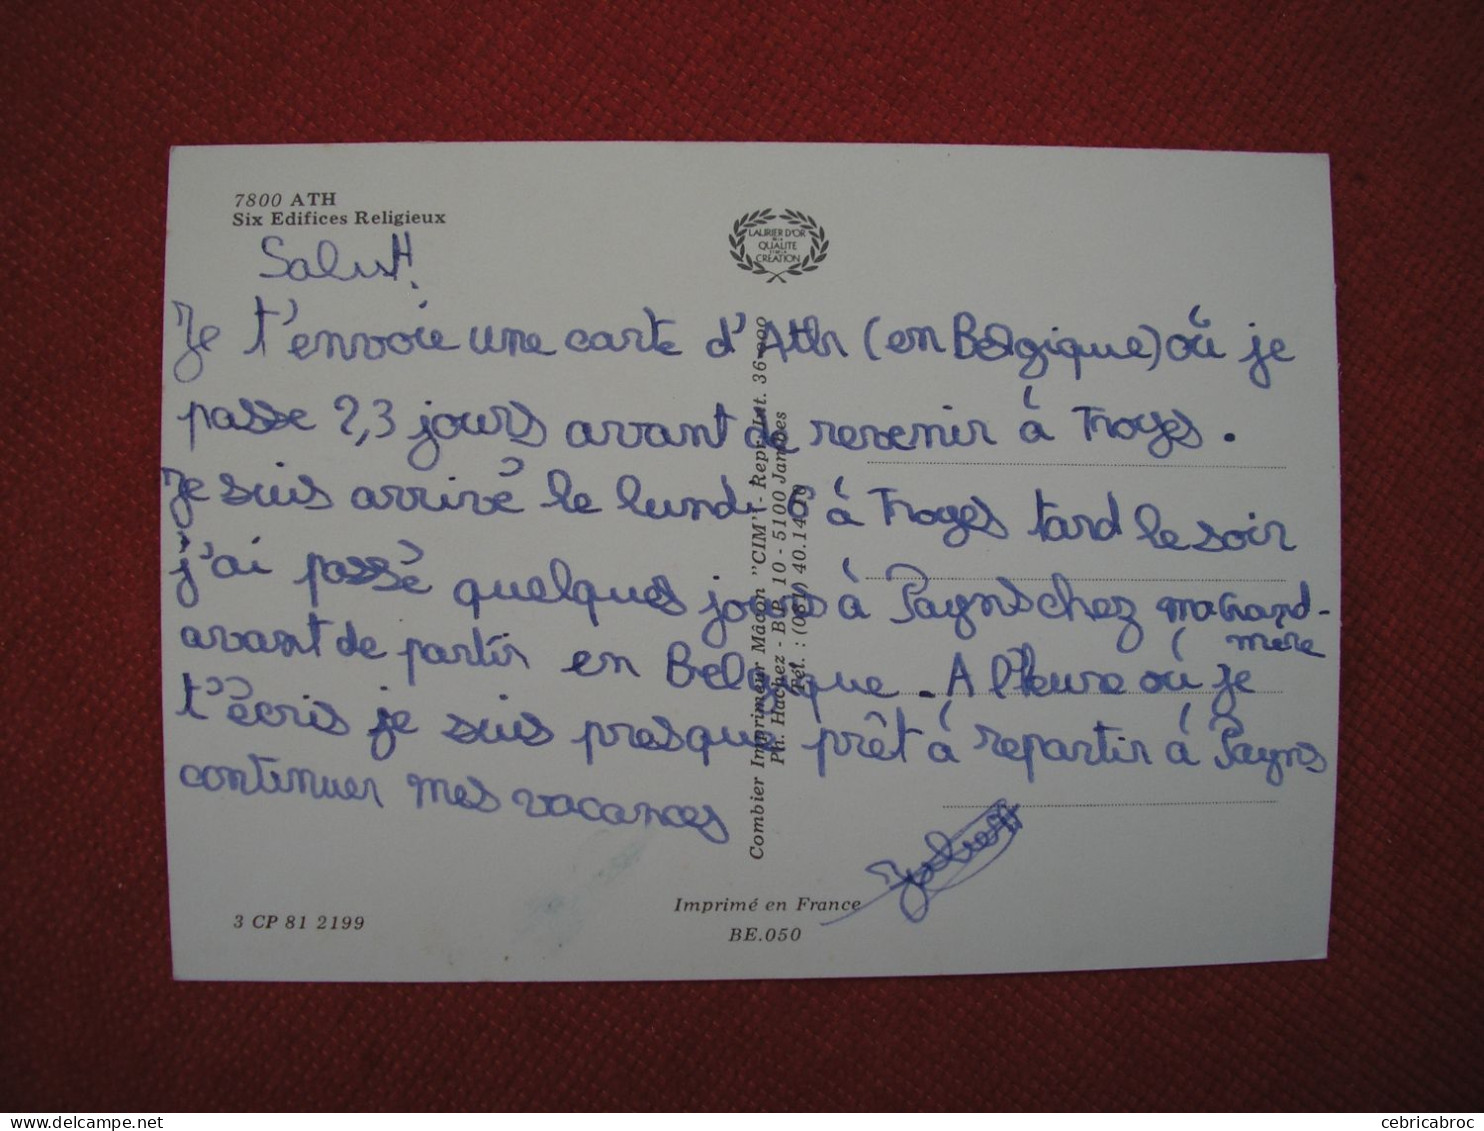 7800 ATH
Six Edifices Religieux
LAURIER D'OR
DE LA
QUALITE
ET DE LA
CREATION
Salut!
Je t'envoie une carte d'Ath (en Belgique) où je
passe 2,3 jours avant de revenir à Troyes.
Je suis arrivé le lundi 6 à Troyes tard le soir
j'ai passé quelques jours à Payns chez ma Grand-
mère
avant de partir en Belgique. A l'heure où je
t'écris je suis presque prêt à repartir à Payns
continuer mes vacances
Combier Imprimeur Mâcon "CIM" - Repr. Int. 36.000
Ph. Hachez - BP. 10 - 5100 Jambes
Tél. : (081) 40.14.10
3 CP 81 2199
Imprimé en France
BE.050
cebricabroc